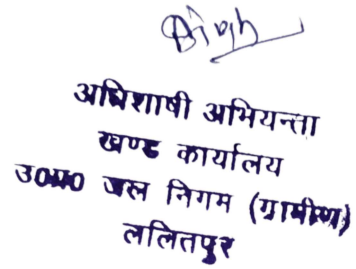 अधिशाषी अभियन्ता
खण्ड कार्यालय
उ0प्र0 जल निगम (ग्रामीण)
ललितपुर